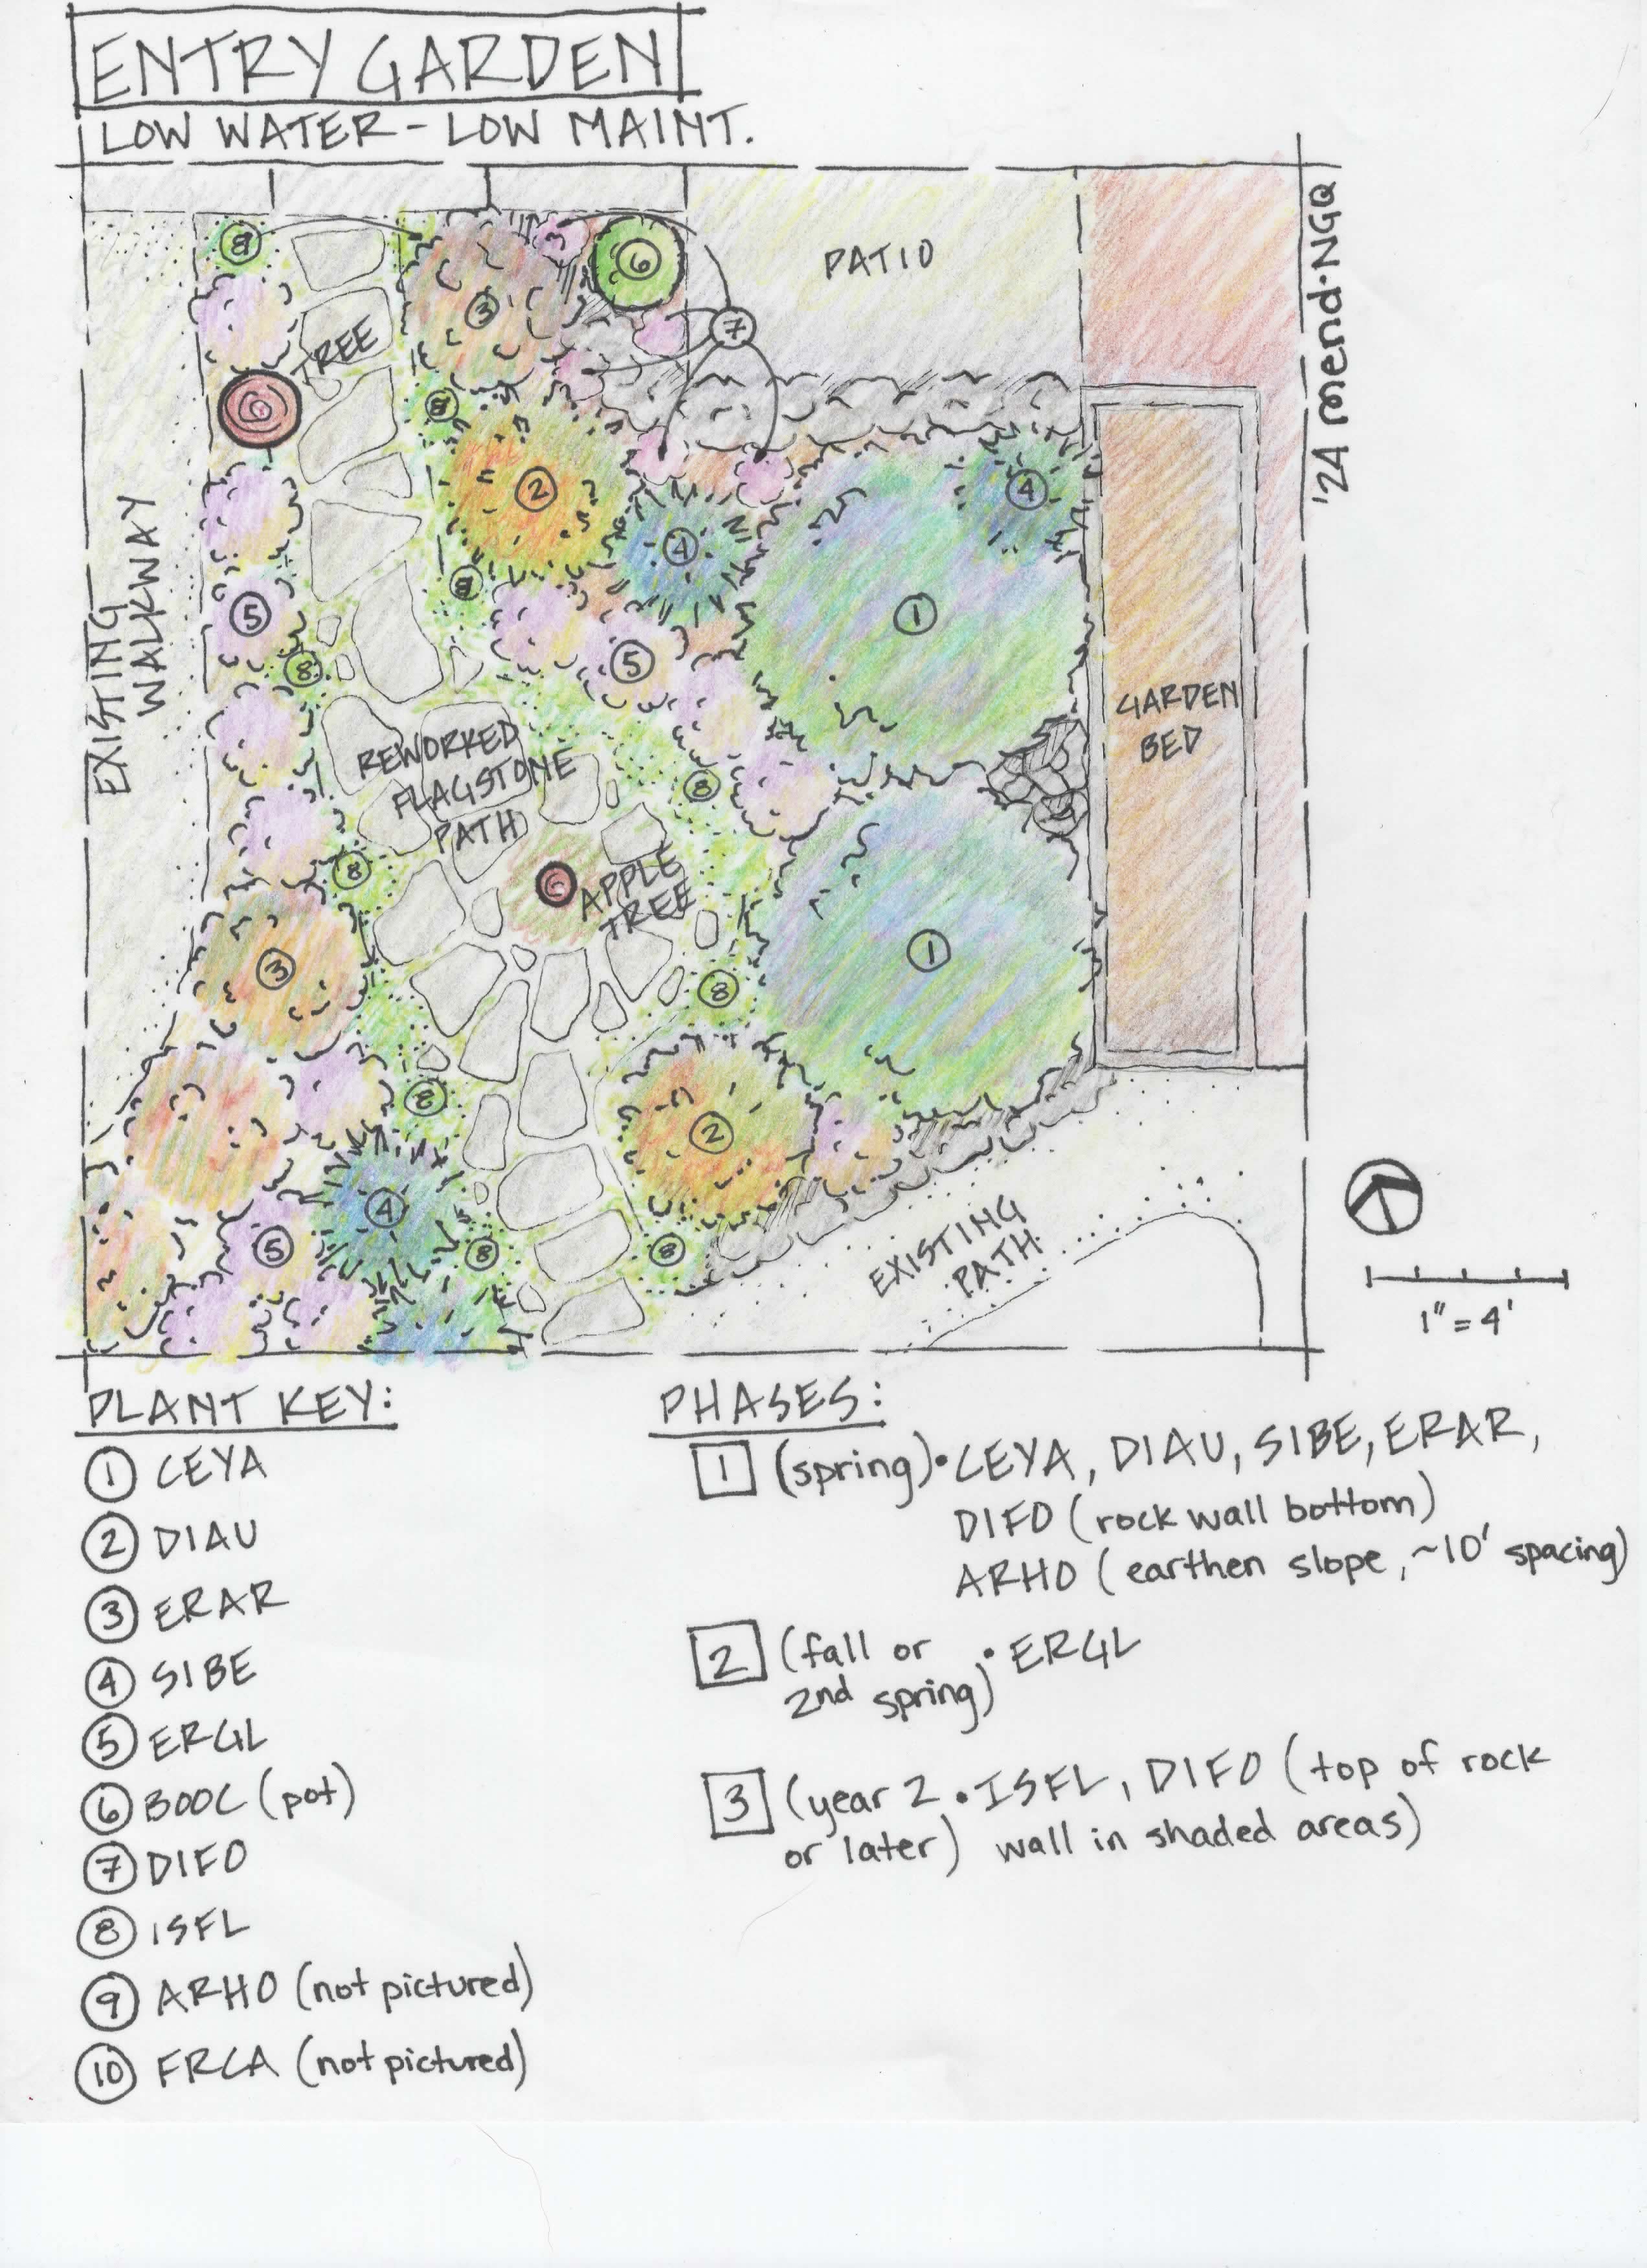 ENTRY GARDEN
LOW WATER - LOW MAINT.
'24 mend·NGQ
8
3
6
PATIO
7
TREE
8
2
4
4
EXISTING
WALKWAY
8
5
1
5
8
GARDEN
BED
REWORKED
FLAGSTONE
PATH
8
8
APPLE
TREE
3
1
8
8
2
4
5
8
8
EXISTING
PATH
1" = 4'
PLANT KEY:
1 CEYA
2 DIAU
3 ERAR
4 SIBE
5 ERGL
6 BOOC (pot)
7 DIFO
8 ISFL
9 ARHO (not pictured)
10 FRCA (not pictured)
PHASES:
1 (spring) • CEYA, DIAU, SIBE, ERAR,
DIFO (rock wall bottom)
ARHO (earthen slope, ~10' spacing)
2 (fall or • ERGL
2nd spring)
3 (year 2 • ISFL, DIFO (top of rock
or later) wall in shaded areas)